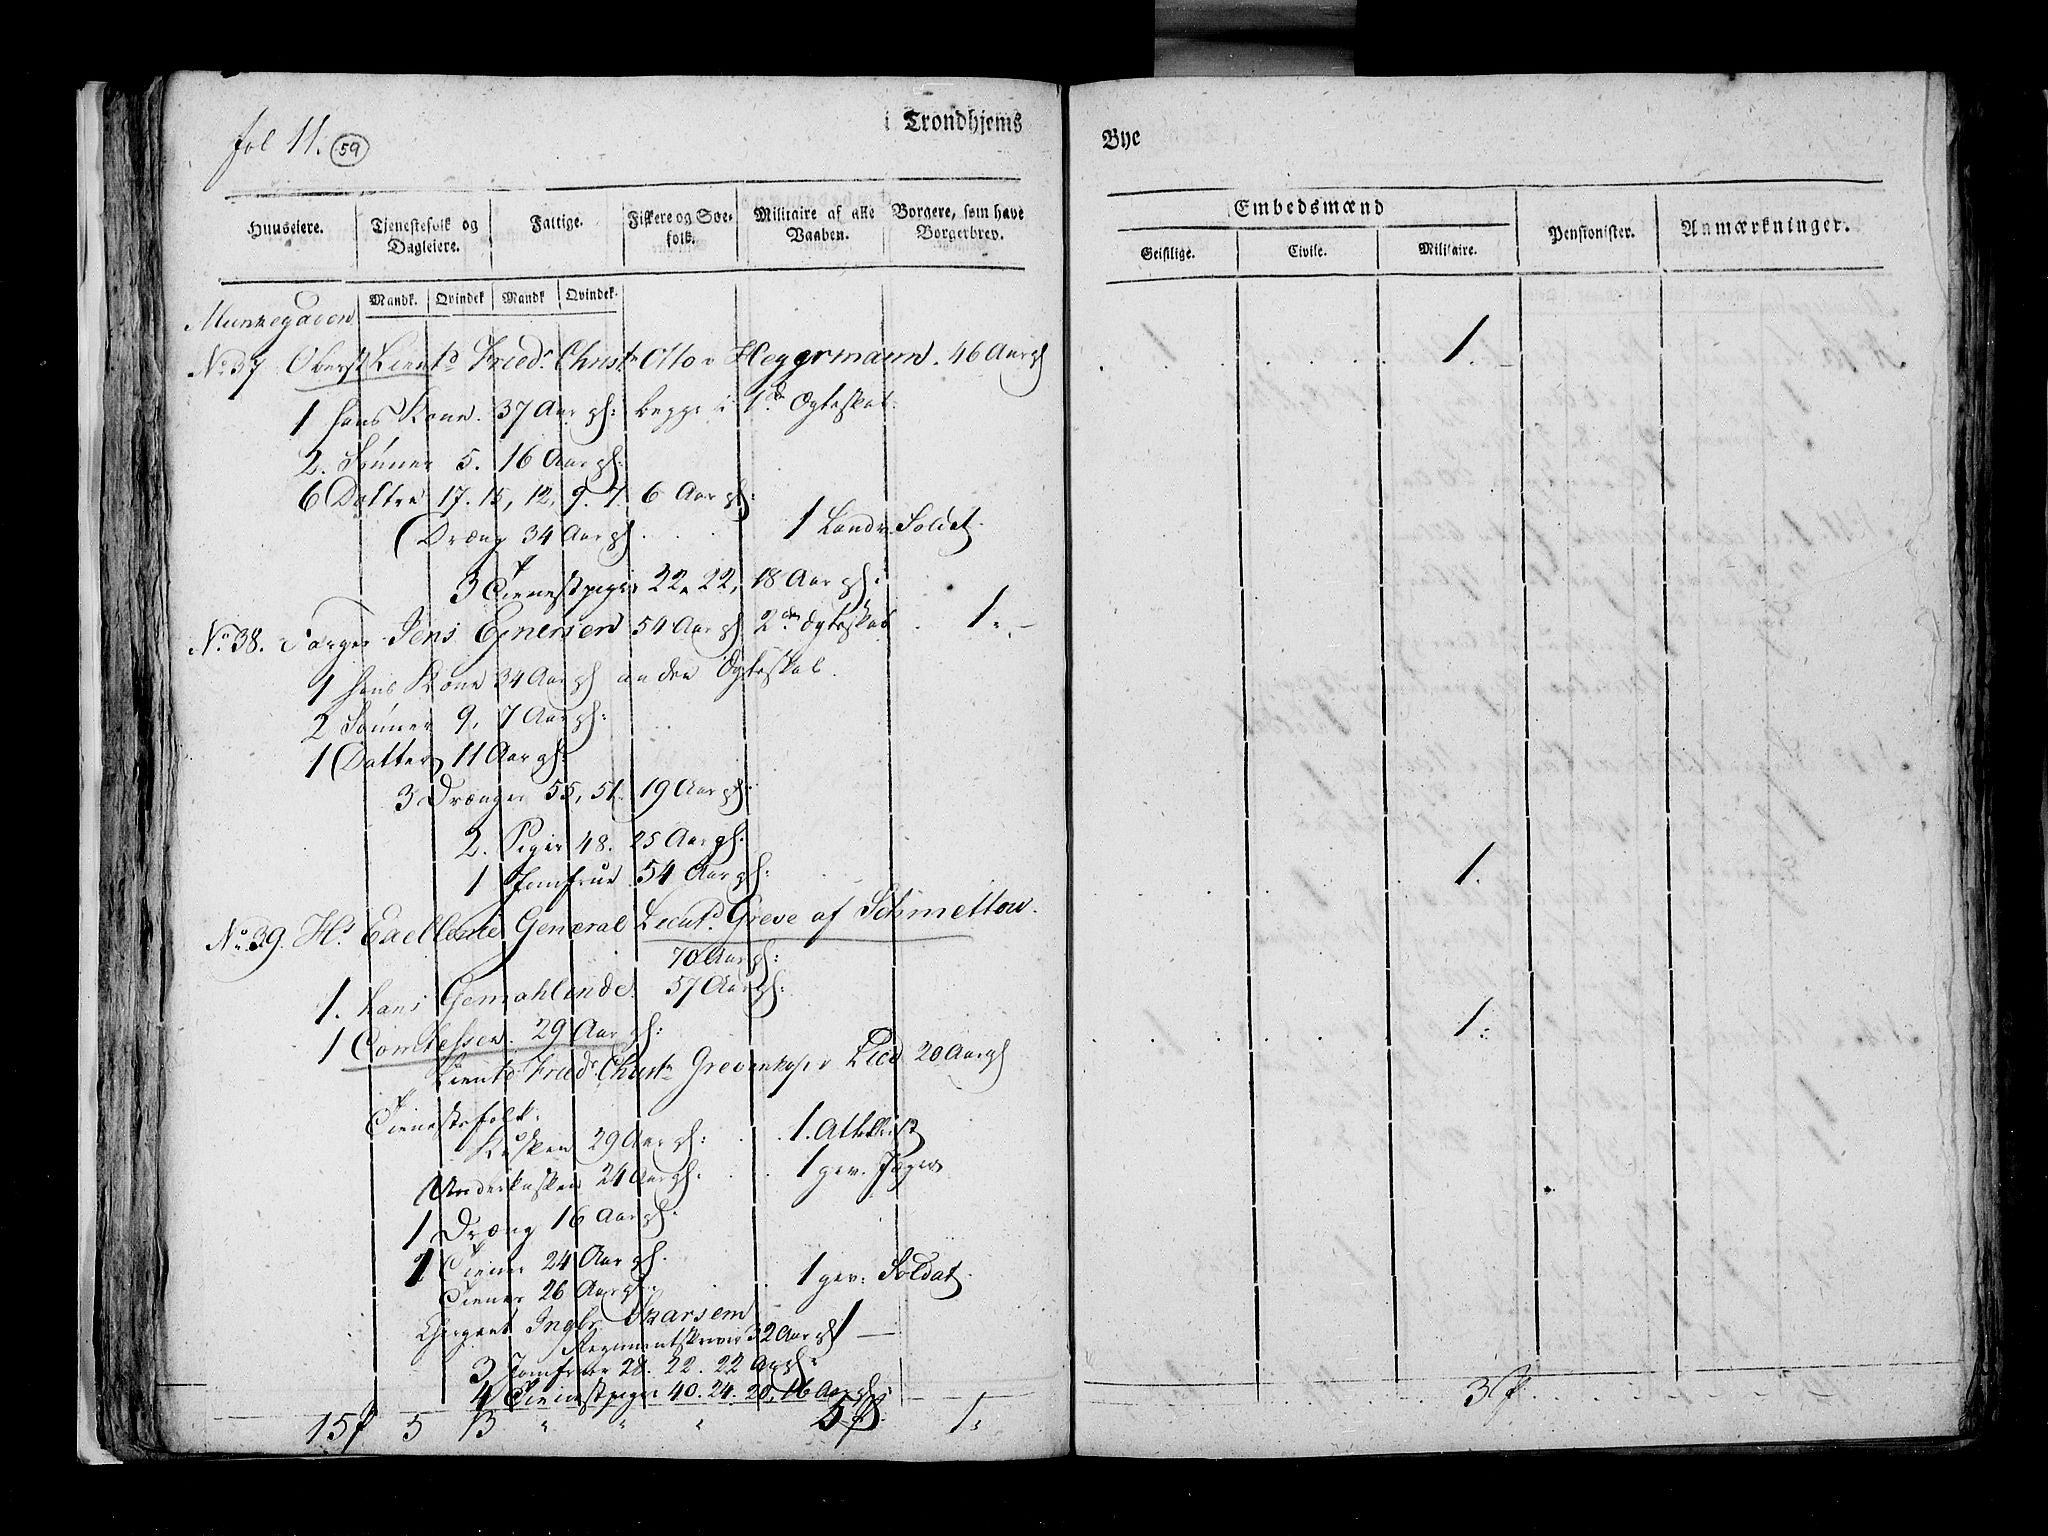 fol 11. 59
i Trondhjems
Bye
Huuseiere.
Tjenestefolk og Dagleiere.
Fattige.
Fiskere og Søe-folk.
Militaire af alle Vaaben.
Borgere, som have Borgerbrev.
Embedsmænd
Geistlige.
Civile.
Militaire.
Pensionister.
Anmærkninger.
Mandk. Qvindek Mandk Qvindek.
Munkegaden
No 37 Oberst Lieut: Fried. Christ Otto v Heggermann. 46 Aar gl 1.
1 hans Kone. 37 Aar gl: begge i 1ste Ægteskab.
2. Sønner 5. 16 Aar gl:
6 Døttre 17. 15, 12, 9. 7. 6 Aar gl:
Dræng 34 Aar gl 1 Landv. Soldat.
3 Tienestpiger 22. 22, 18 Aar gl:
No 38. Jens 54 Aar gl 2det Ægteskab 1.
1 hans Kone 34 Aar gl anden Ægteskab.
2 Sønner 9, 7 Aar gl:
1 Datter 11 Aar gl:
3 Drænger 55, 51. 19 Aar gl:
2. Piger 48. 25 Aar gl:
1 Jomfrue 54 Aar gl:
No 39. Hs Excellence General Lieut. Greve af Schmettow. 1.
70 Aar gl:
1. hans Gemahlinde. 57 Aar gl:
1 Comtesse. 29 Aar gl:
Lieut Fried. Christ. Grevenkop 20 Aar gl 1.
Tienestefolk.
Kusken 29 Aar gl: 1.
Underkusken 24 Aar gl: 1 gev. Jæger
1 Dræng 16 Aar gl.
1 Tiener 24 Aar gl.
Tiener 26 Aar gl. 1 gev: Soldat.
Ingbr. Skarsem
Regimentskriver 32 Aar gl 1
3 Jomfruer 28. 22. 22 Aar gl:
4 Tienestpiger 40. 24. 20, 16 Aar gl:
15 5 13 " " " 5 1. 3